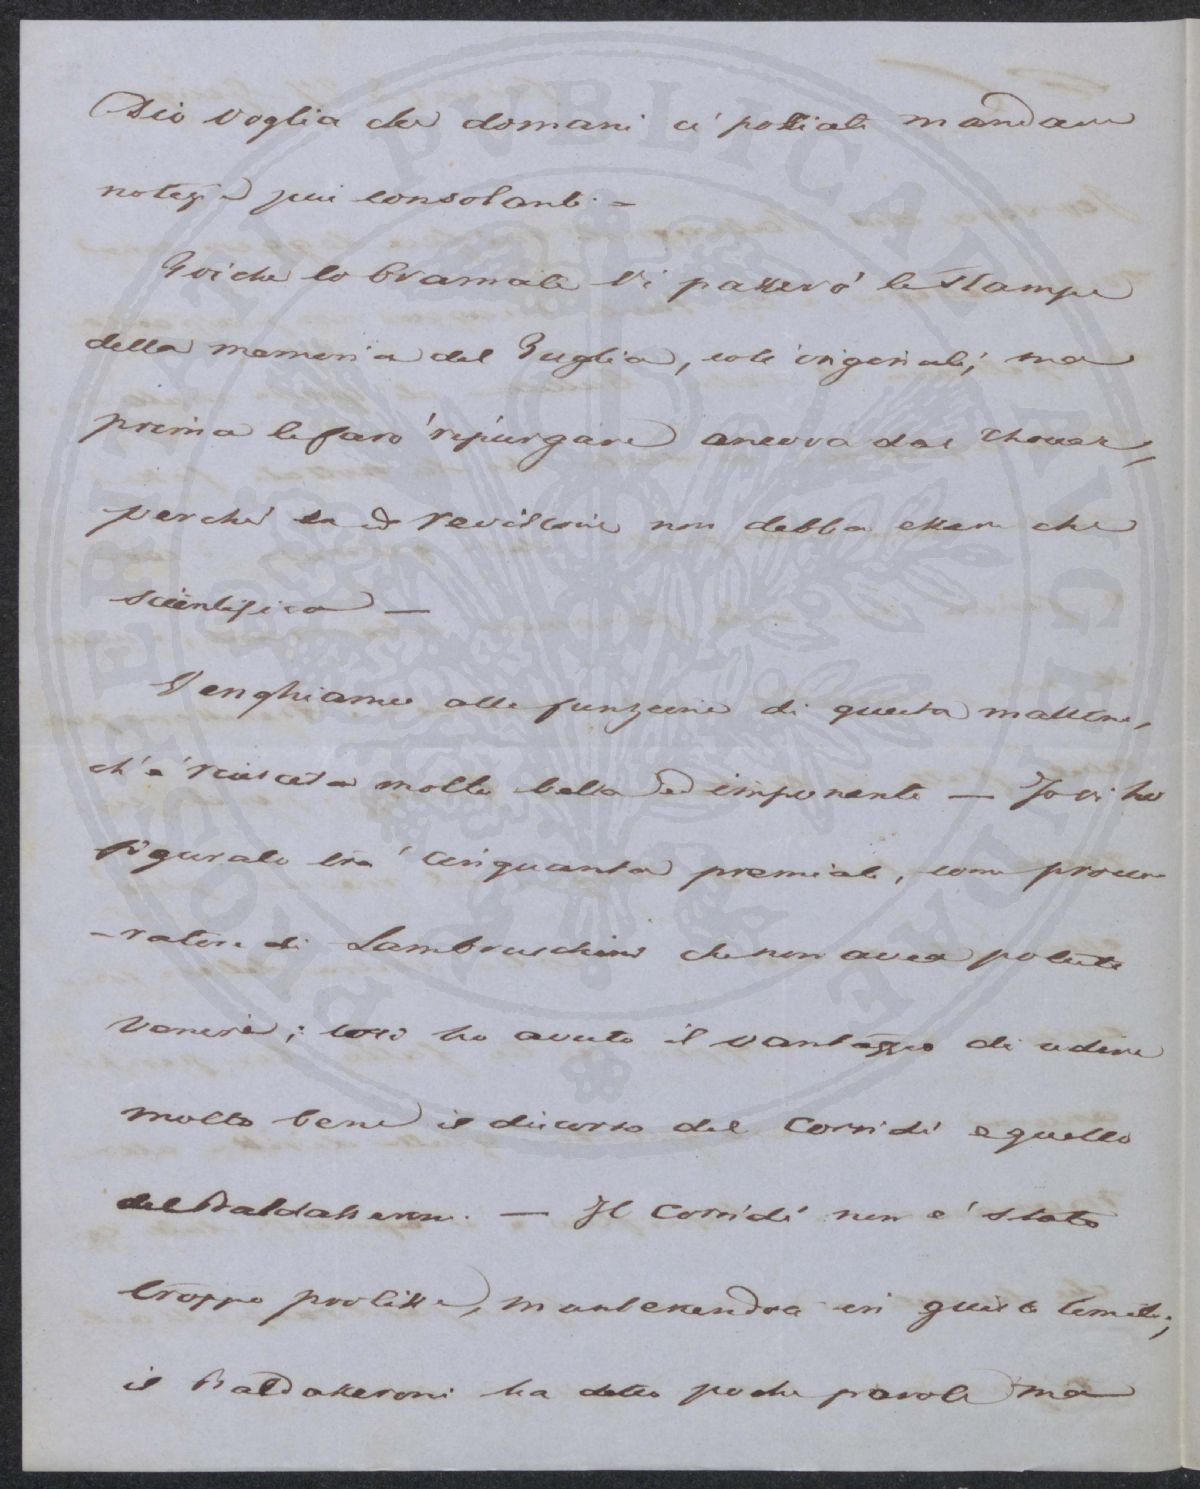 Dio voglia che domani ci possiate mandare
notizie più consolanti. –
Poichè lo bramate Vi passerò le stampe
della memoria del Puglia, cole originali; ma
prima le farò ripurgare ancora dal Thouar,
perchè la revisione non debba essere che
scientifica —
Venghiamo alla funzione di questa mattina,
ch'è riuscita molto bella ed imponente — Io vi ho
figurato trà cinquanta premiati, come procu
-ratore di Lambruschini che non avea potuto
venire; così ho avuto il vantaggio di udire
molto bene il discorso del Corridi e quello
del Baldasseroni. — Il Corridi non è stato
troppo prolisso, mantenendosi in giusti limiti;
il Baldasseroni ha dette poche parole ma
PROSPERITATI PVBLICAE AVGENDAE